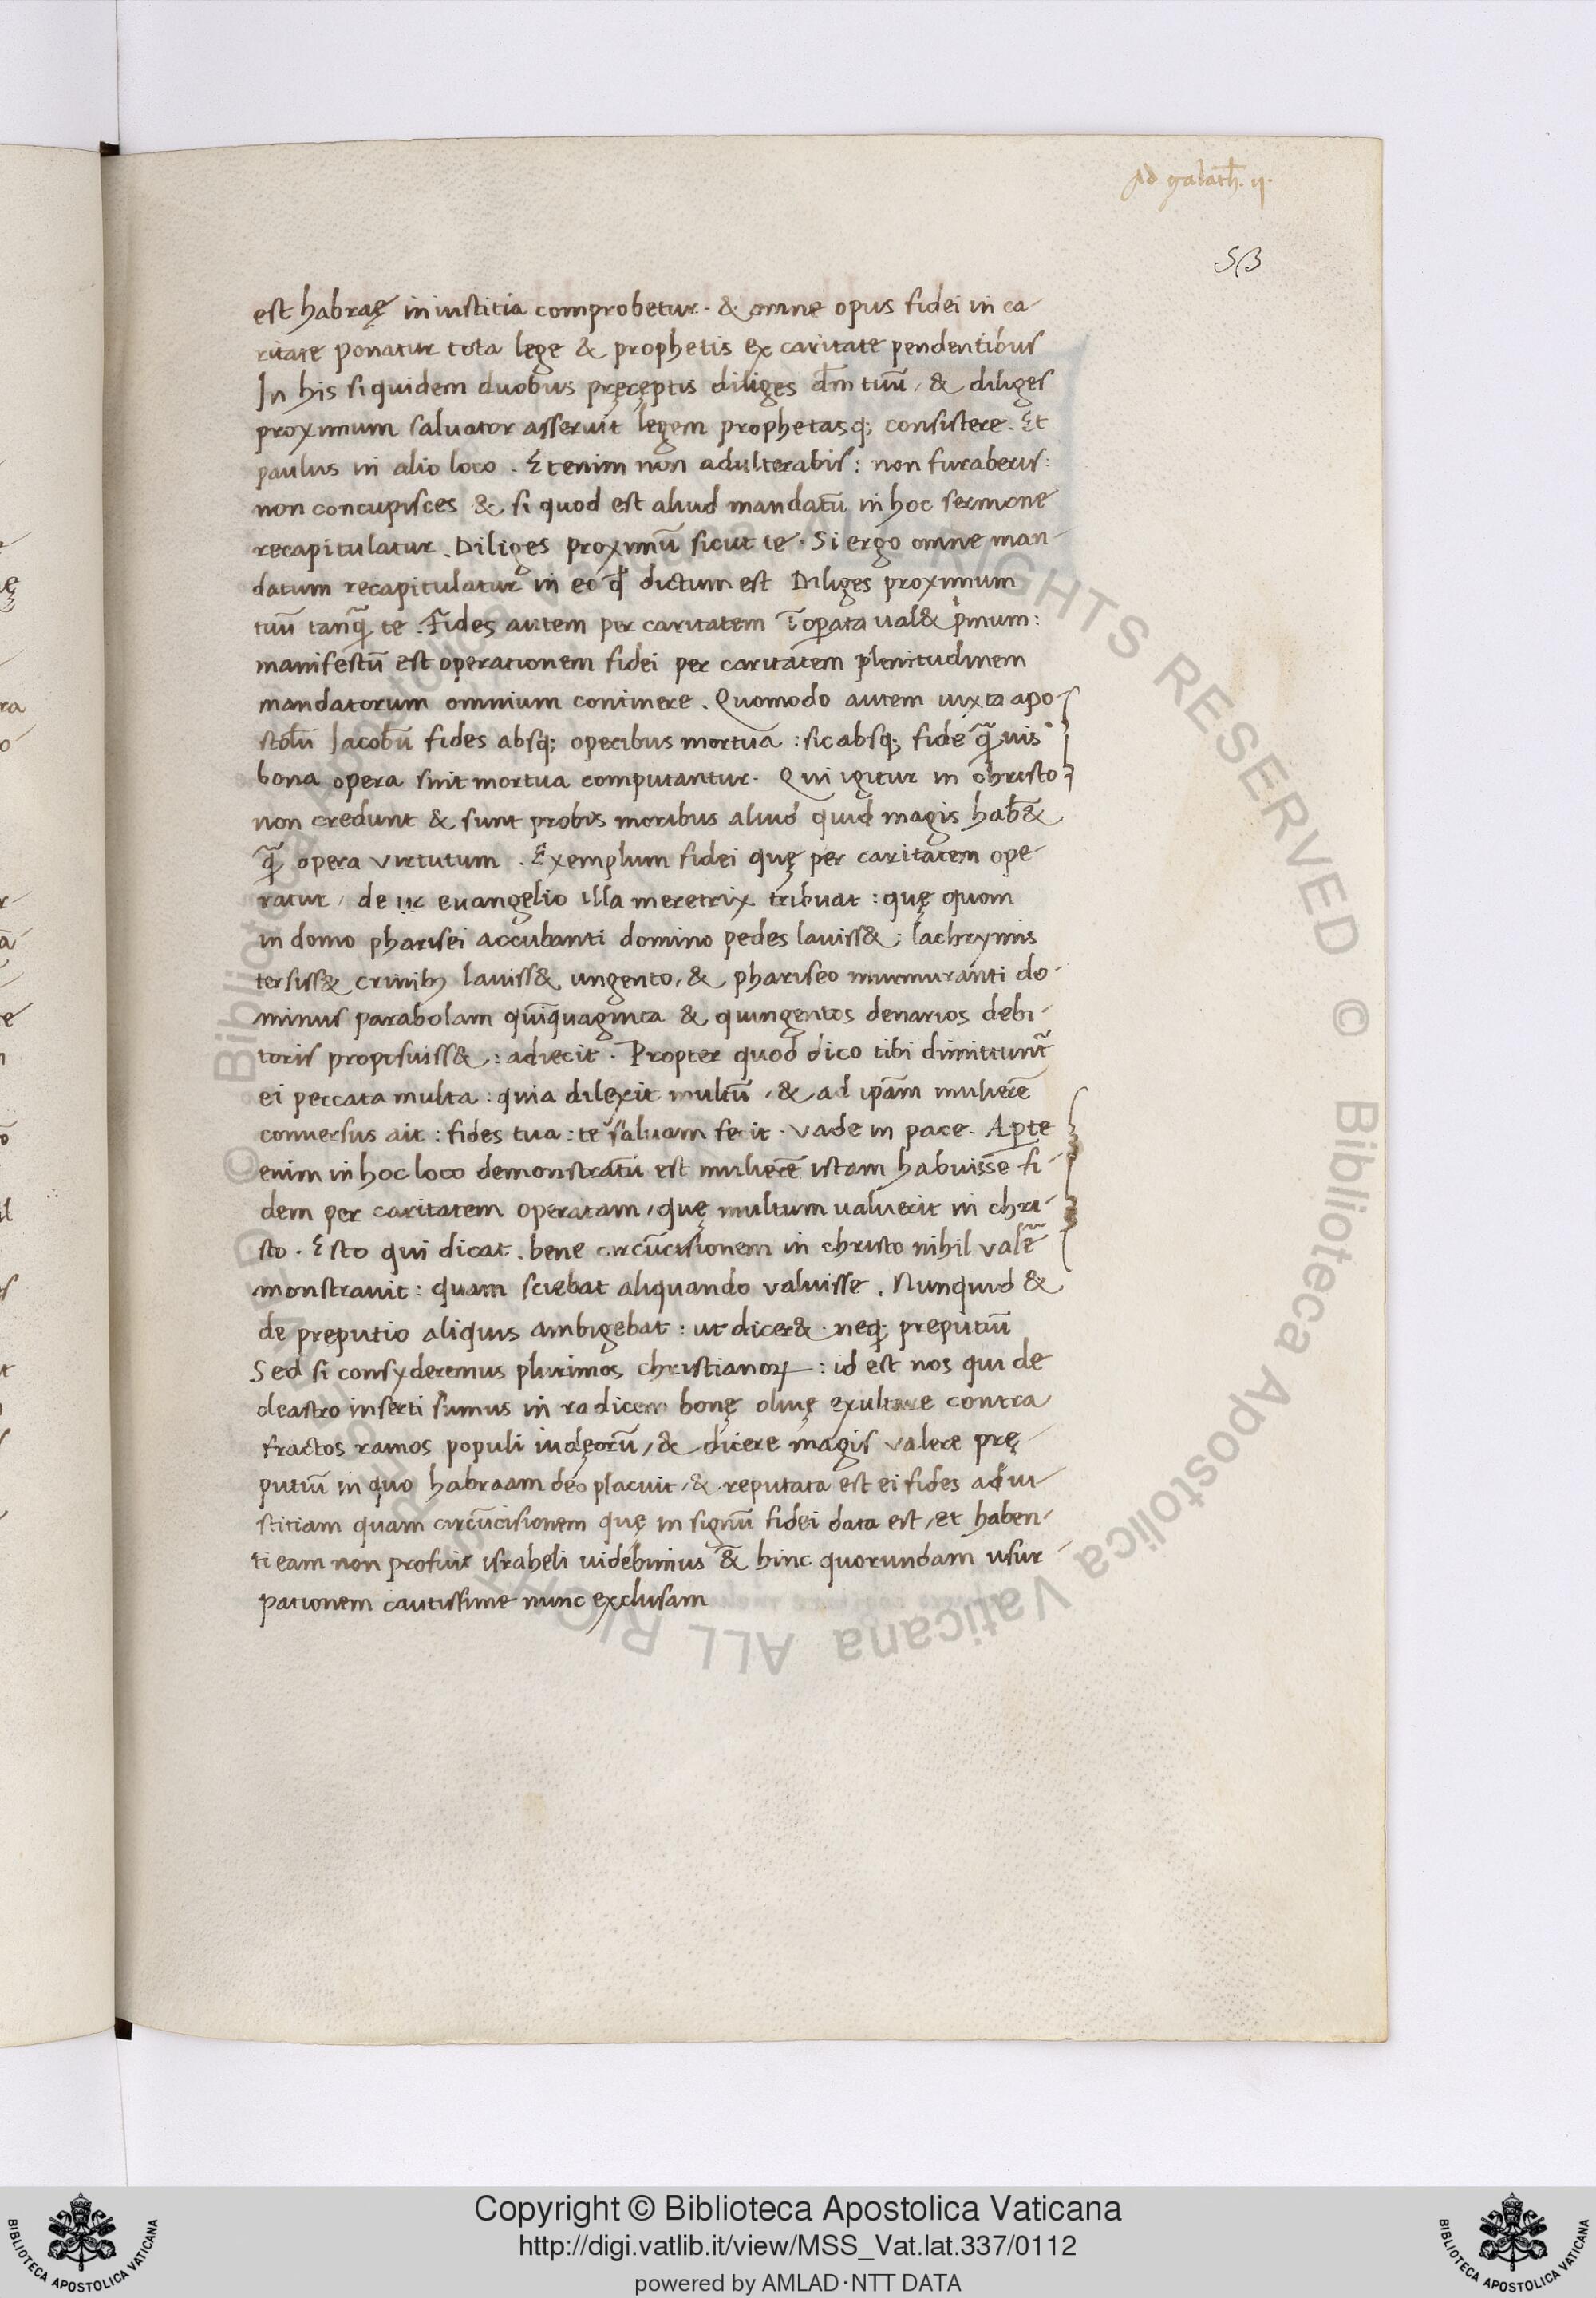 Ad galath̄. ij.
53
est habraę in iustitia comprobetur. & omne opus fidei in ca-
ritate ponatur tota lege & prophetis ex caritate pendentibus
In his siquidem duobus pręcęptis diliges dm̄ tuū, & diliges
proximum saluator asseruit legem prophetasq; consistere. Et
paulus in alio loco. Etenim non adulterabis: non furaberis:
non concupisces & si quod est aliud mandatū in hoc sermone
recapitulatur. Diliges proximū sicut te. Si ergo omne man-
datum recapitulatur in eo qd̄ dictum est Diliges proximum
tuū tanq̄ te. Fides autem per caritatem īoꝑata ual& primum:
manifestū est operationem fidei per caritatem plenitudinem
mandatorum omnium continere. Quomodo autem iuxta apo-
stolū Jacobū fides absq; operibus mortua: sic absq; fide q̄uis
bona opera sint mortua computantur. Qui igitur in christo
non credunt & sunt probis moribus aliud quid magis hab&
q̄ opera virtutum. Exemplum fidei quę per caritatem ope
ratur, de euangelio illa meretrix tribuat: quę quom
in domo pharisei accubanti domino pedes lauiss&: lachrymis
tersiss& crinib; lauiss& ungento, & phariseo murmuranti do-
minus parabolam quīquaginta & quingentos denarios debi-
toris proposuiss&: adiecit. Propter quod dico tibi dimittunt̄
ei peccata multa: quia dilexit multū, & ad ip̄am mulierē
conuersus ait: fides tua: te saluam fecit. Vade in pace. Aꝑte
enim in hoc loco demonstratū est mulierē istam habuisse fi-
dem per caritatem operatam, quę multum ualuerit in chri-
sto. Esto qui dicat. bene circūcisionem in christo nihil valē
monstrauit: quam sciebat aliquando valuisse. Nunquid &
de preputio aliquis ambigebat: ut dicer&. neq; preputiū
Sed si consyderemus plurimos christianoꝝ: id est nos qui de
oleastro inserti sumus in radicem bonę oliuę exultare contra
fractos ramos populi iudęorū, & dicere magis valere prę-
putiū in quo habraam deo placuit, & reputata est ei fides ad iu-
stitiam quam circūcisionem quę in signū fidei data est, et haben-
ti eam non profuit israheli uidebimus & hinc quorundam usur-
pationem cautissime nunc exclusam
© Biblioteca Apostolica Vaticana ALL RIGHTS RESERVED
© Biblioteca Apostolica Vaticana ALL RIGHTS RESERVED
Copyright © Biblioteca Apostolica Vaticana
http://digi.vatlib.it/view/MSS_Vat.lat.337/0112
powered by AMLAD·NTT DATA
BIBLIOTECA APOSTOLICA VATICANA
BIBLIOTECA APOSTOLICA VATICANA